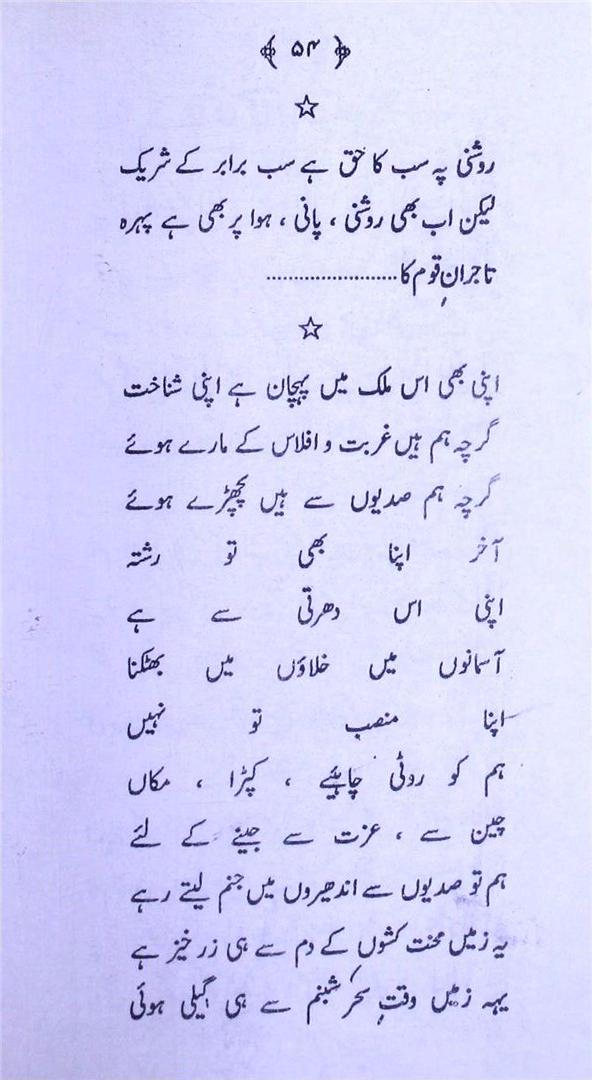 ﴿ ۵۴ ﴾
☆
روشنی پہ سب کا حق ہے سب برابر کے شریک
لیکن اب بھی روشنی ، پانی ، ہوا پر بھی ہے پہرہ
تاجرانِ قوم کا........................
☆
اپنی بھی اس ملک میں پہچان ہے اپنی شناخت
گرچہ ہم ہیں غربت و افلاس کے مارے ہوئے
گرچہ ہم صدیوں سے ہیں بچھڑے ہوئے
آخر اپنا بھی تو رشتہ
اپنی اس دھرتی سے ہے
آسمانوں میں خلاؤں میں بھٹکنا
اپنا منصب تو نہیں
ہم کو روٹی چاہئیے ، کپڑا ، مکاں
چین سے ، عزت سے جینے کے لئے
ہم تو صدیوں سے اندھیروں میں جنم لیتے رہے
یہ زمیں محنت کشوں کے دم سے ہی زرخیز ہے
یہہ زمیں وقتِ سحر شبنم سے ہی گیلی ہوئی